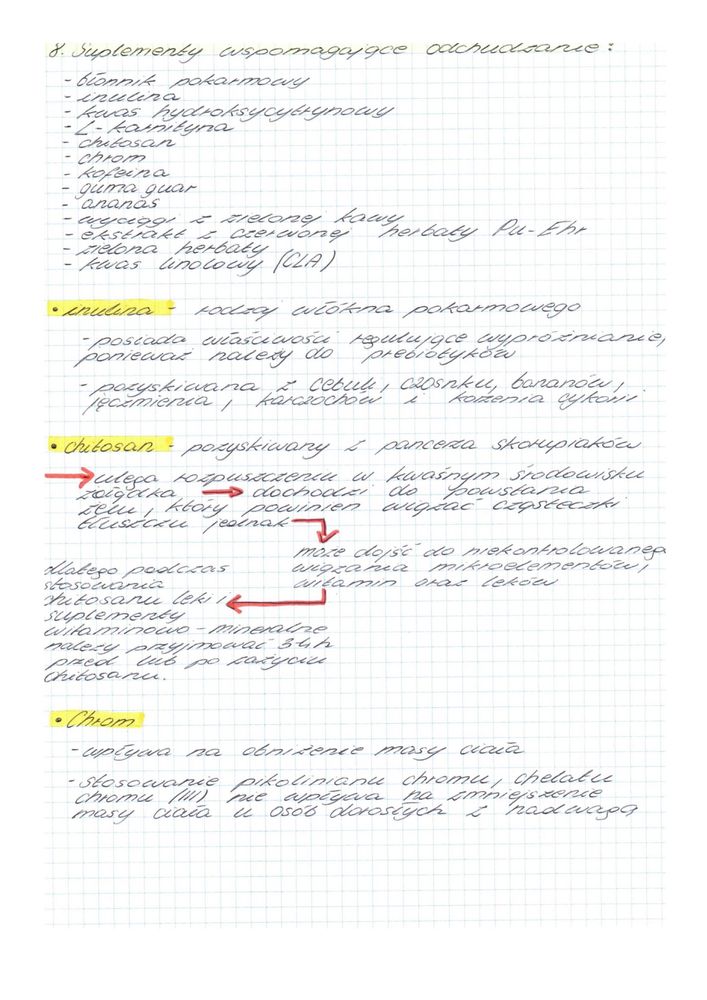 8. Suplementy wspomagające odchudzanie:
- błonnik pokarmowy
- inulina
- kwas hydroksycytrynowy
- L-karnityna
- chitosan
- chrom
- kofeina
- guma guar
- ananas
- wyciągi z zielonej kawy
- ekstrakt z czerwonej herbaty Pu-Ehr
- zielona herbaty
- kwas linolowy (CLA)
• inulina - rodzaj włókna pokarmowego
- posiada właściwości regulujące wypróżnianie,
ponieważ należy do prebiotyków
- pozyskiwana z cebuli, czosnku, bananów,
jęczmienia, karczochów i korzenia cykorii
• chitosan - pozyskiwany z pancerza skorupiaków
→ ulega rozpuszczeniu w kwaśnym środowisku
żołądka → dochodzi do powstania
żelu, który powinien wiązać cząsteczki
tłuszczu jednak
może dojść do niekontrolowanego
wiązania mikroelementów,
witamin oraz leków
dlatego podczas
stosowania
chitosanu leki i
suplementy
witaminowo-mineralne
należy przyjmować 3-4h
przed lub po zażyciu
chitosanu.
• Chrom
- wpływa na obniżenie masy ciała
- stosowanie pikolinianu chromu, chelatu
chromu (III) nie wpływa na zmniejszenie
masy ciała u osób dorosłych z nadwagą